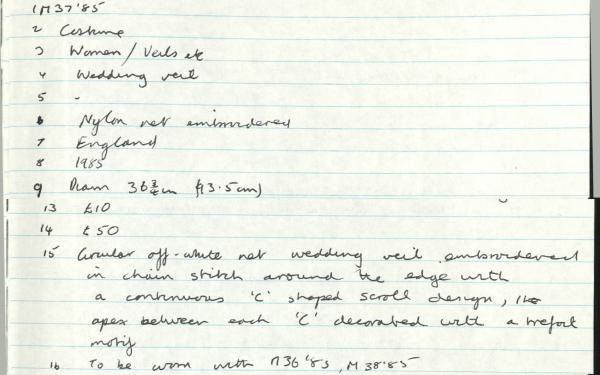 1 M37'85
2 Costume
3 Women / Veils etc
4 Wedding veil
5 -
6 Nylon net embroidered
7 England
8 1985
9 Diam 36 ¾ in (93.5cm)
13 £10
14 £50
15 Circular off-white net wedding veil embroidered
in chain stitch around the edge with
a continuous 'C' shaped scroll design, the
apex between each 'C' decorated with a trefoil
motif
16 To be worn with M36'85, M38'85